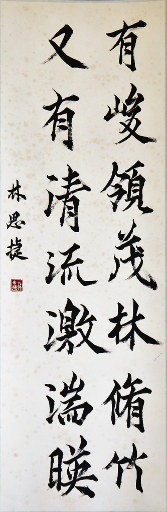 有峻領茂林脩竹
又有清流激湍暎
林思捷